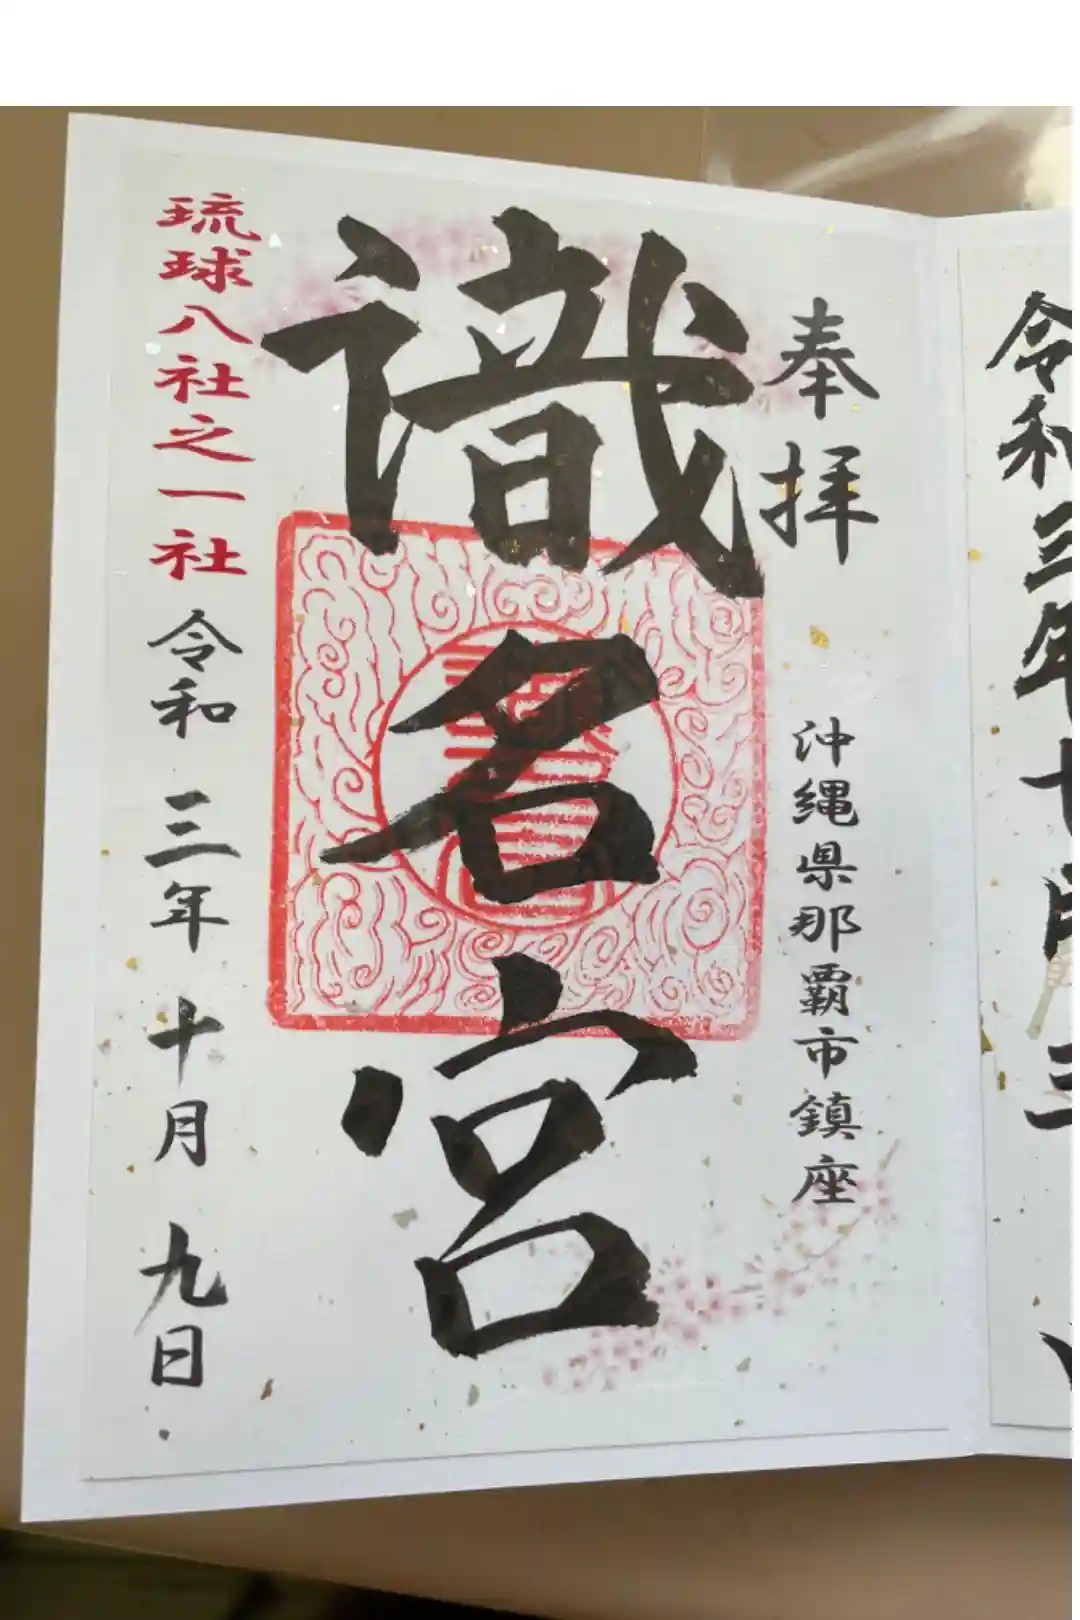 令和三年十月三
奉拝 沖縄県那覇市鎮座
識名宮
琉球八社之一社 令和三年十月九日